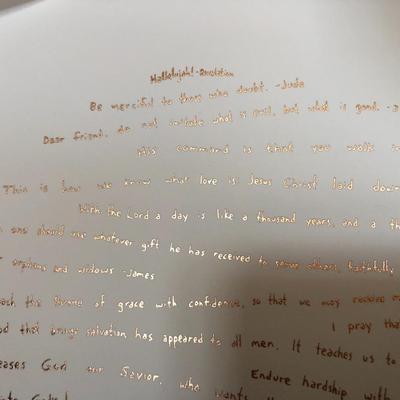 Hallelujah! -Revelation
Be merciful to those who doubt. -Jude
Dear friend, do not imitate what is evil, but what is good. -3
His command is that you walk in
This is how we know what love is: Jesus Christ laid down
With the Lord a day is like a thousand years, and a th
one should use whatever gift he has received to serve others, faithfully
orphans and widows -James
the throne of grace with confidence, so that we may receive
that brings salvation has appeared to all men. It teaches us to I pray that
God our Savior, who wants Endure hardship with